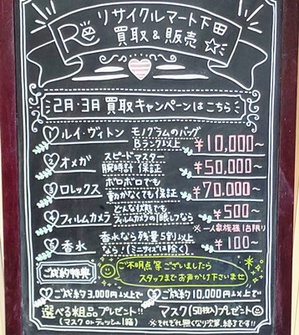 Re リサイクルマート下田
買取&販売
2月・3月 買取キャンペーンはこちら
① ルイ・ヴィトン モノグラムのバッグ Bランク以上 ¥10,000~
② オメガ スピードマスター 腕時計 保証 ¥50,000~
③ ロレックス ボロボロ 動かなくても保証 ¥70,000~
④ フィルムカメラ どんな状態でも ¥500~
※一人家族様1台限り
⑤ 香水 香水なら残量5割以上 なら!(ミニサイズは除く) ¥100~
ご成約特典
ご不明点等ございましたら
スタッフまでお声かけ下さいませ
ご成約3,000円以上で
選べる粗品プレゼント!!
(マスクorティッシュ1箱)
ご成約10,000円以上で
マスク(50枚)プレゼント
※それぞれ無くなり次第、終了です